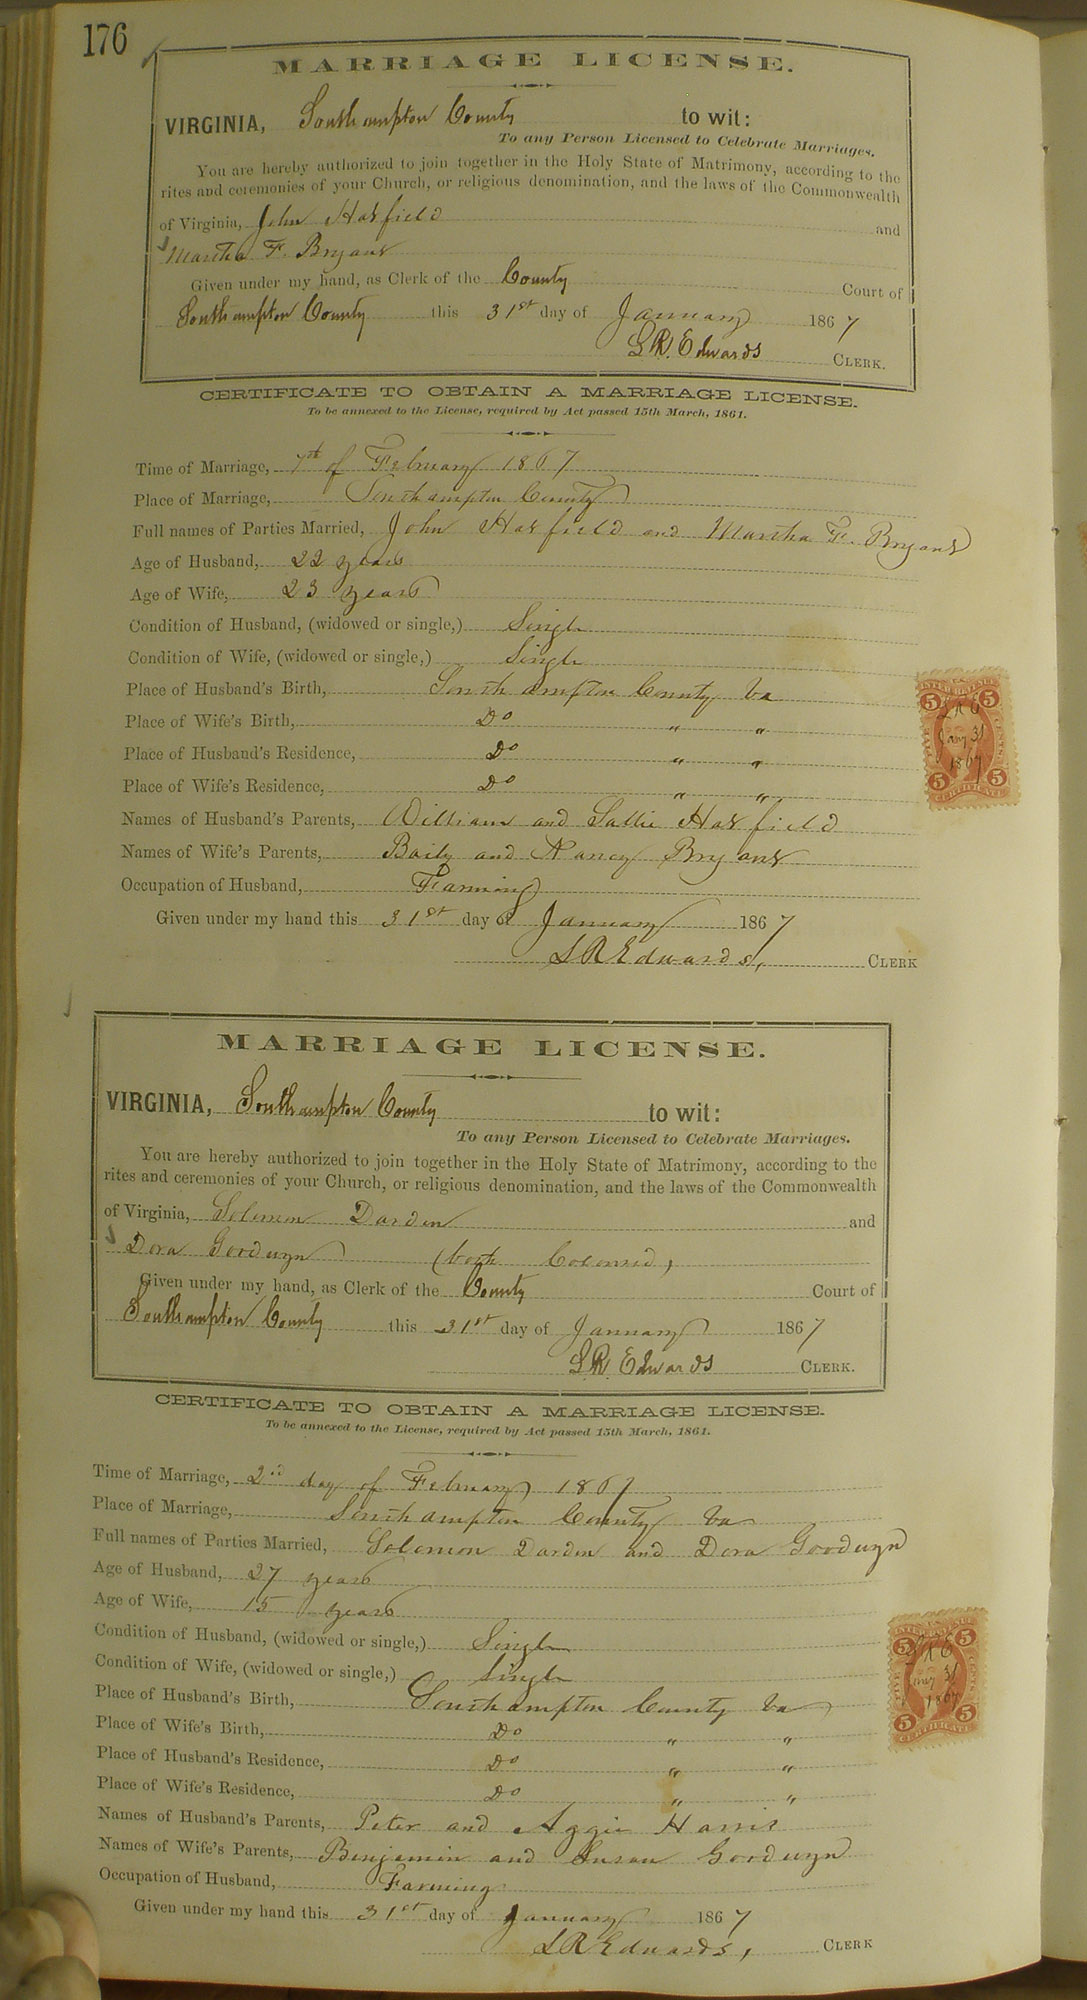 176
MARRIAGE LICENSE.
VIRGINIA, Southampton County to wit:
To any Person Licensed to Celebrate Marriages.
You are hereby authorized to join together in the Holy State of Matrimony, according to the
rites and ceremonies of your Church, or religious denomination, and the laws of the Commonwealth
of Virginia, John Hatfield and
Martha F. Bryant
Given under my hand, as Clerk of the County Court of
Southampton County this 31st day of January 1867
L.R. Edwards CLERK.
CERTIFICATE TO OBTAIN A MARRIAGE LICENSE.
To be annexed to the License, required by Act passed 15th March, 1861.
Time of Marriage, 7th of February 1867
Place of Marriage, Southampton County
Full names of Parties Married, John Hatfield and Martha F. Bryant
Age of Husband, 22 years
Age of Wife, 23 years
Condition of Husband, (widowed or single,) Single
Condition of Wife, (widowed or single,) Single
Place of Husband's Birth, Southampton County Va
Place of Wife's Birth, Do " "
Place of Husband's Residence, Do " "
Place of Wife's Residence, Do " "
Names of Husband's Parents, William and Sallie Hatfield
Names of Wife's Parents, Baily and Nancy Bryant
Occupation of Husband, Farming
Given under my hand this 31st day of January 1867
L R Edwards, CLERK
5 5
L R E
Jany 31
1867
5 5
CERTIFICATE
MARRIAGE LICENSE.
VIRGINIA, Southampton County to wit:
To any Person Licensed to Celebrate Marriages.
You are hereby authorized to join together in the Holy State of Matrimony, according to the
rites and ceremonies of your Church, or religious denomination, and the laws of the Commonwealth
of Virginia, Solomon Darden and
Dora Goodwyn (both Colored)
Given under my hand, as Clerk of the County Court of
Southampton County this 31st day of January 1867
L.R. Edwards CLERK.
CERTIFICATE TO OBTAIN A MARRIAGE LICENSE.
To be annexed to the License, required by Act passed 15th March, 1861.
Time of Marriage, 2nd day of February 1867
Place of Marriage, Southampton County Va
Full names of Parties Married, Solomon Darden and Dora Goodwyn
Age of Husband, 27 years
Age of Wife, 15 years
Condition of Husband, (widowed or single,) Single
Condition of Wife, (widowed or single,) Single
Place of Husband's Birth, Southampton County Va
Place of Wife's Birth, Do " "
Place of Husband's Residence, Do " "
Place of Wife's Residence, Do " "
Names of Husband's Parents, Peter and Aggie Harris
Names of Wife's Parents, Benjamin and Susan Goodwyn
Occupation of Husband, Farming
Given under my hand this 31st day of January 1867
L R Edwards, CLERK
5 5
L R E
Jany 31
1867
5 5
CERTIFICATE